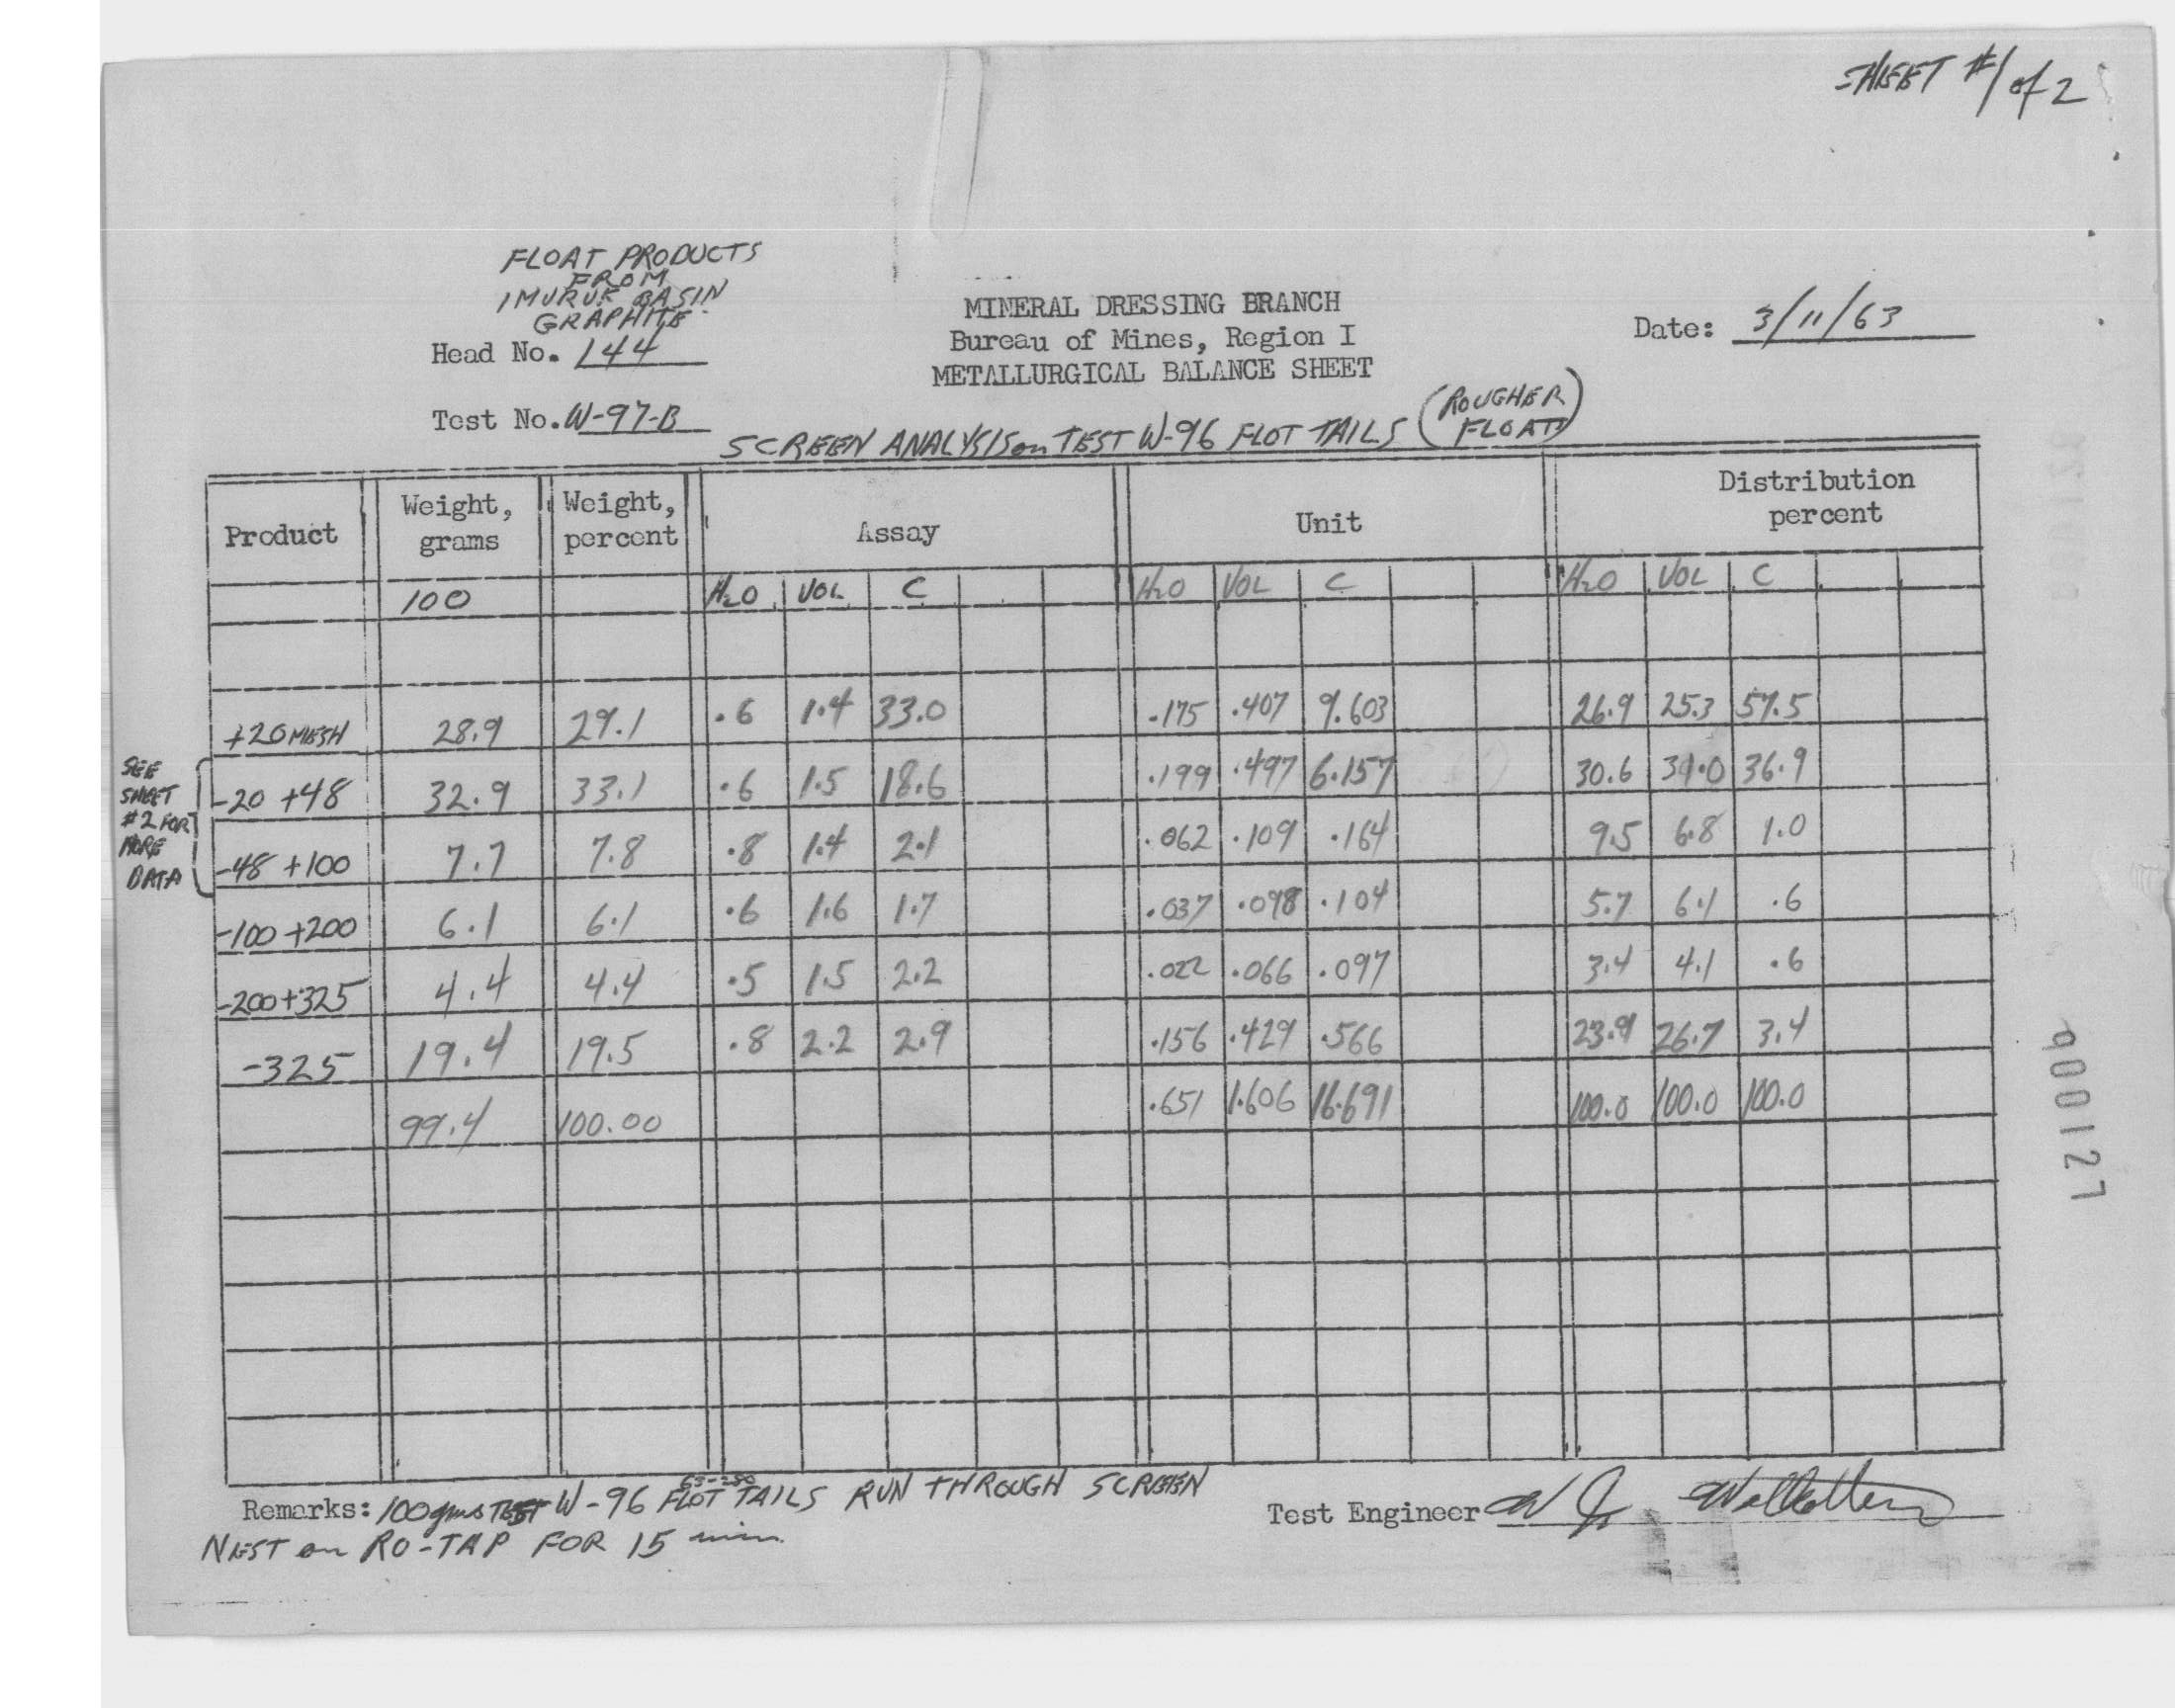 SHEET #1 of 2
FLOAT PRODUCTS
FROM
IMURUK BASIN
GRAPHITE
Head No. L44
Test No. W-97-B
MINERAL DRESSING BRANCH
Bureau of Mines, Region I
METALLURGICAL BALANCE SHEET
Date: 3/11/63
SCREEN ANALYSIS on TEST W-96 FLOT TAILS (ROUGHER FLOAT)
Product Weight, grams Weight, percent Assay Unit Distribution percent
100 H2O VOL C H2O VOL C H2O VOL C
+20 MESH 28.9 29.1 .6 1.4 33.0 .175 .407 9.603 26.9 25.3 57.5
-20 +48 32.9 33.1 .6 1.5 18.6 .199 .497 6.157 30.6 31.0 36.9
-48 +100 7.7 7.8 .8 1.4 2.1 .062 .109 .164 9.5 6.8 1.0
-100 +200 6.1 6.1 .6 1.6 1.7 .037 .098 .104 5.7 6.1 .6
-200+325 4.4 4.4 .5 1.5 2.2 .022 .066 .097 3.4 4.1 .6
-325 19.4 19.5 .8 2.2 2.9 .156 .429 .566 23.9 26.7 3.4
99.4 100.00 .651 1.606 16.691 100.0 100.0 100.0
SEE
SHEET
#2 FOR
MORE
DATA
Remarks: 100 gms TEST W-96 FLOT TAILS RUN THROUGH SCREEN
63-250
NEST on RO-TAP FOR 15 min.
Test Engineer W Jr
900127